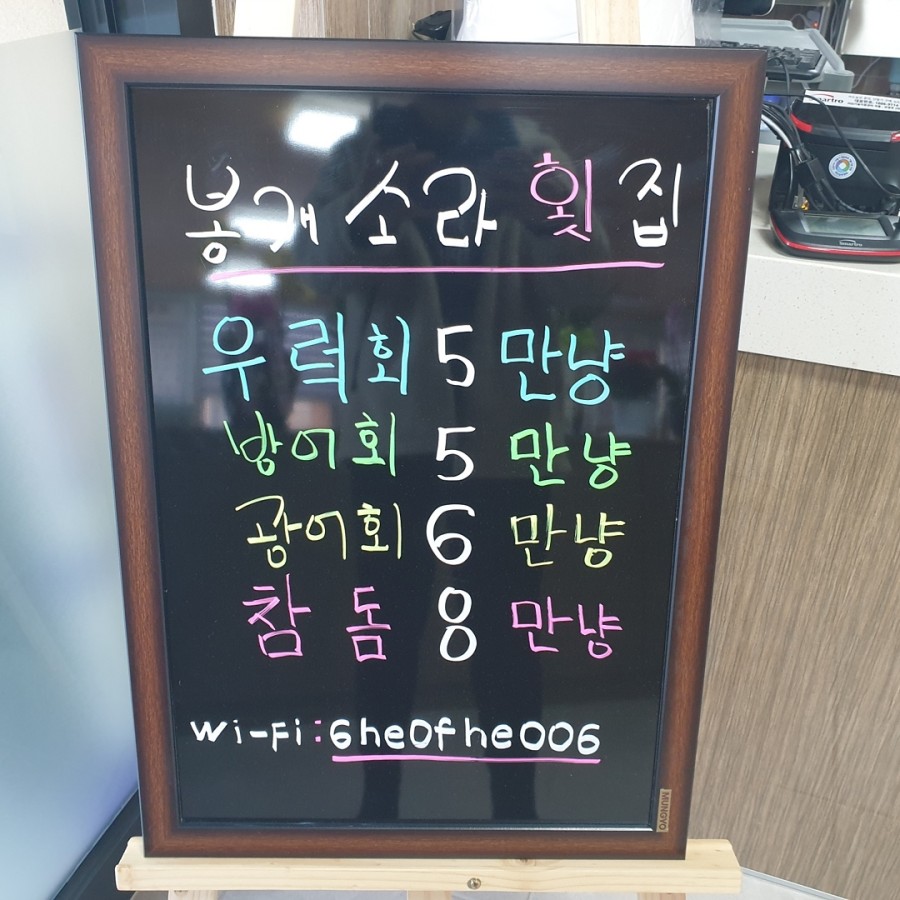 봉개소라횟집
우럭회 5만냥
방어회 5만냥
광어회 6만냥
참돔 8만냥
Wi-Fi:6he0fhe006
MUNGYO
Smartro